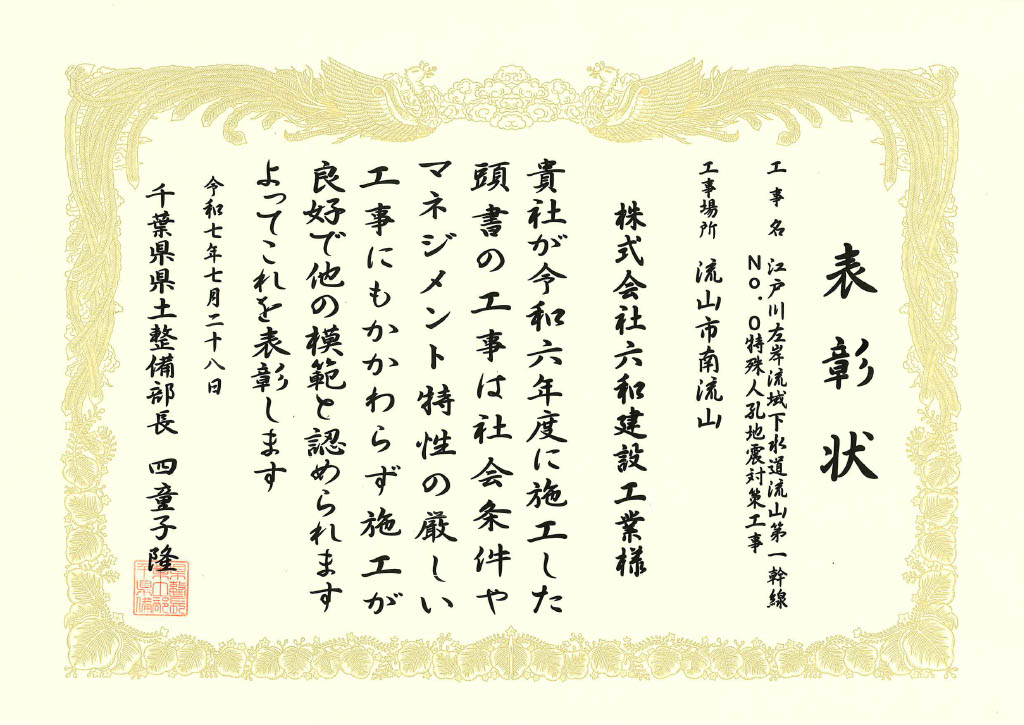 表彰状
工事名 江戸川左岸流域下水道流山第一幹線
No.0特殊人孔地震対策工事
工事場所 流山市南流山
株式会社六和建設工業様
貴社が令和六年度に施工した
頭書の工事は社会条件や
マネジメント特性の厳しい
工事にもかかわらず施工が
良好で他の模範と認められます
よってこれを表彰します
令和七年七月二十八日
千葉県県土整備部長 四童子隆